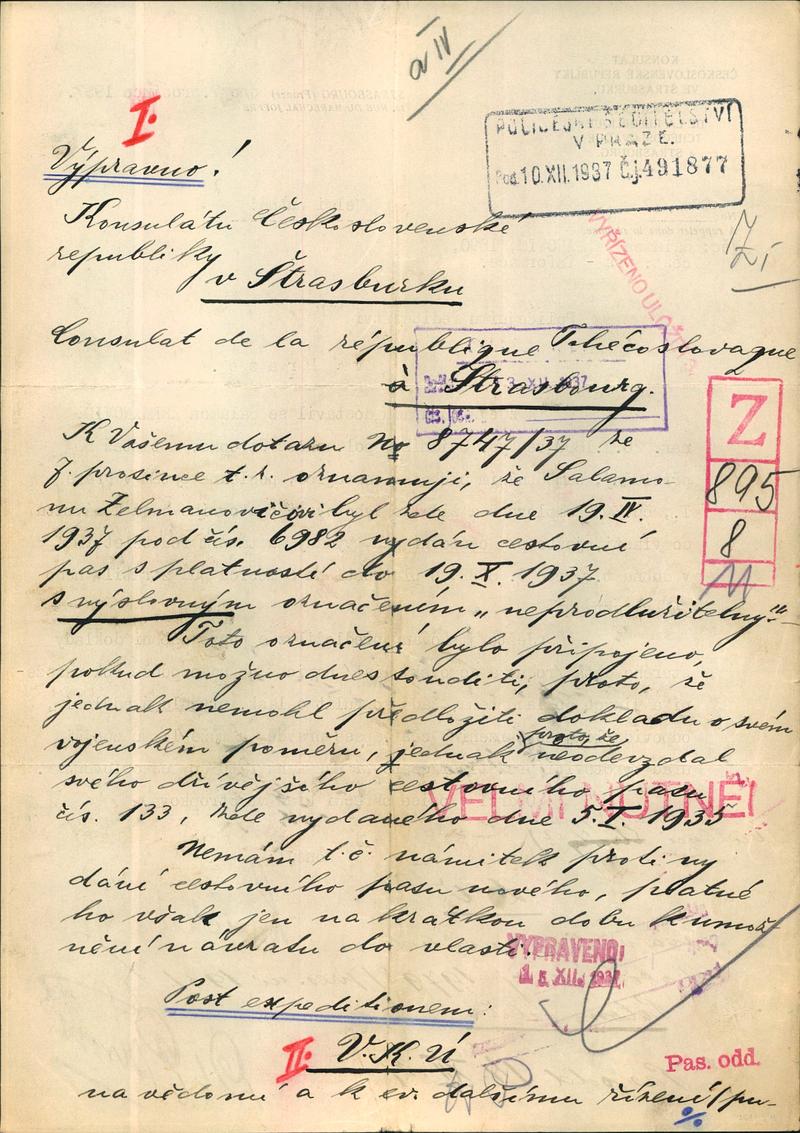 a IV
I.
POLICEJNÍ ŘEDITELSTVÍ
V PRAZE.
Pod. 10. XII. 1937 Čj. 491877
Výpravno!
Konsulátu Československé
republiky
v Štrasburku
VYŘÍZENO
Consulat de la république Tchécoslovaque
à Strasbourg.
XII. 1937
Z
895
8
11
K Vašemu dotazu No 8747/37 ze
7. prosince t.r. oznamuji, že Salamo-
nu Zelmanovičovi byl zde dne 19. IV.
1937 pod čís. 6982 vydán cestovní
pas s platností do 19. X. 1937
s výslovným označením „neprodlužitelný."
Toto označení bylo připojeno,
pokud možno dnes souditi, proto, že
jednak nemohl předložiti dokladu o svém
vojenském poměru, jednak proto, že neodevzdal
svého dřívějšího cestovního pasu
čís. 133, zde vydaného dne 5. I. 1935
VELMI NUTNÉ!
Nemám t.č. námitek proti vy
dání cestovního pasu nového, platné
ho však jen na krátkou dobu k umož-
nění návratu do vlasti.
VYPRAVENO:
15. XII. 1937
Post expeditionem:
II. V.K.Ú
Pas. odd.
na vědomí a k ev. dalšímu řízení/pu-